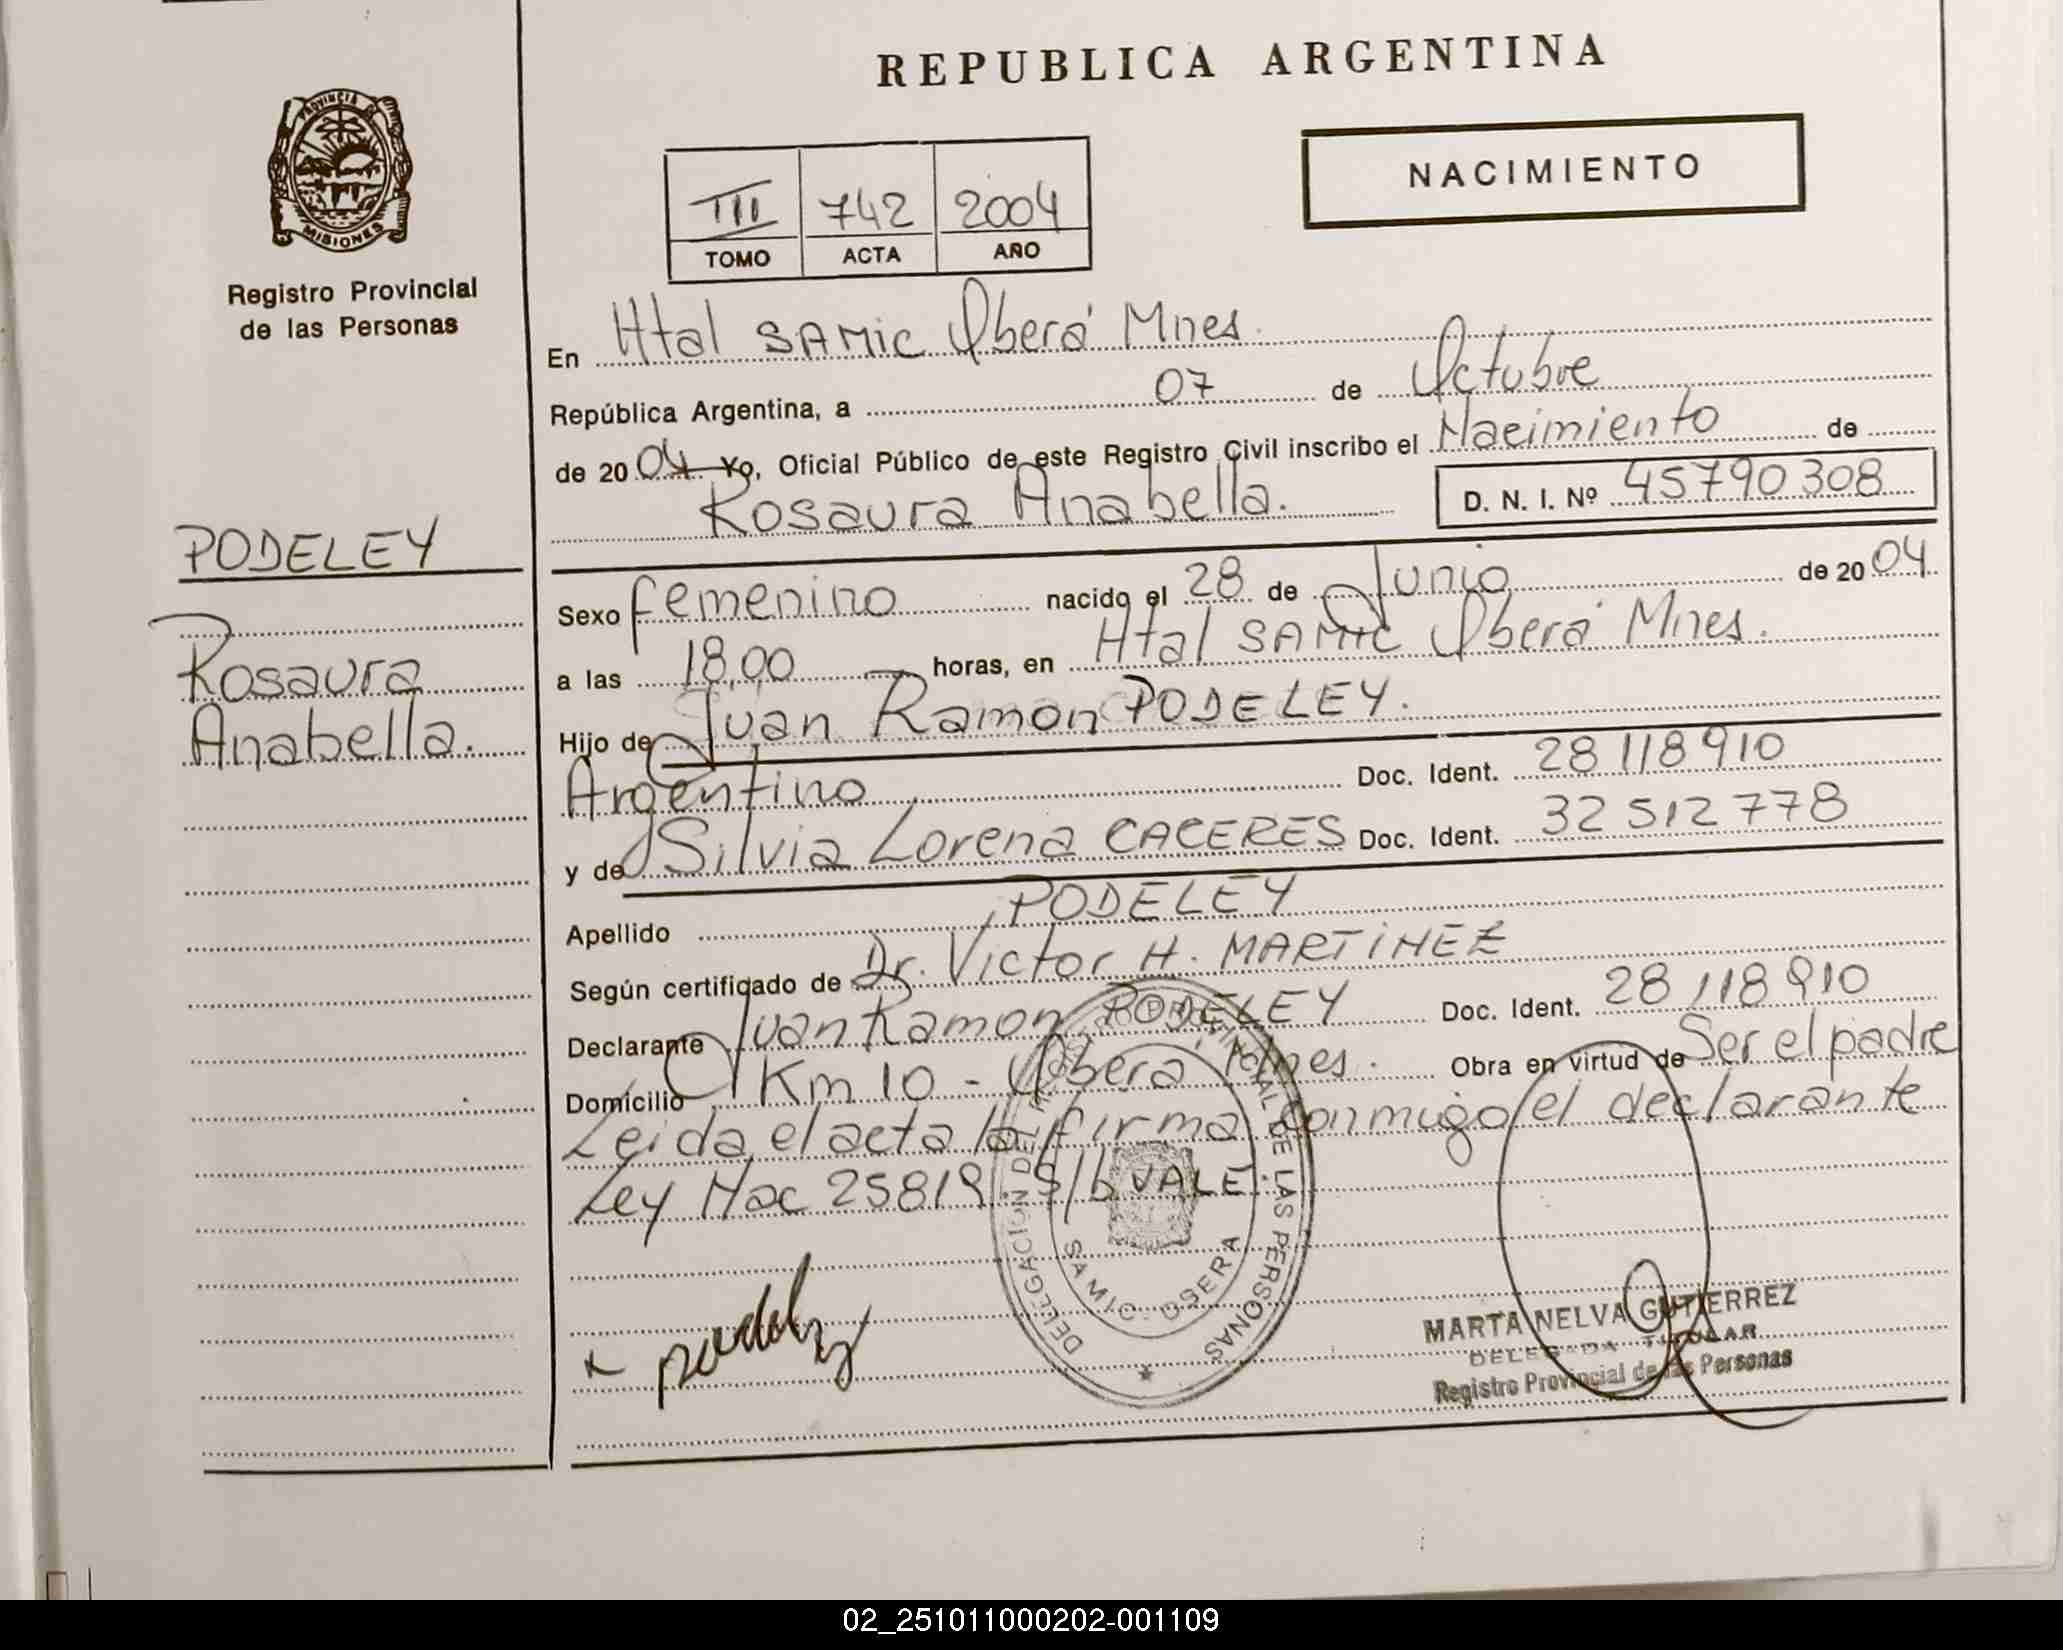 REPUBLICA ARGENTINA
PROVINCIA DE MISIONES
Registro Provincial
de las Personas
NACIMIENTO
III 742 2004
TOMO ACTA AÑO
En Htal SAMIC Oberá Mnes.
República Argentina, a 07 de Octubre
de 2004 Yo, Oficial Público de este Registro Civil inscribo el Nacimiento de
Rosaura Anabella. D. N. I. Nº 45790308
PODELEY
Rosaura
Anabella.
Sexo femenino nacido el 28 de Junio de 2004
a las 18,00 horas, en Htal SAMIC Oberá Mnes.
Hijo de Juan Ramon PODELEY.
Argentino Doc. Ident. 28 118 910
y de Silvia Lorena CACERES Doc. Ident. 32 512 778
Apellido PODELEY
Según certificado de Dr. Victor H. MARTINEZ
Declarante Juan Ramon PODELEY Doc. Ident. 28 118 910
Domicilio Km 10 - Oberá, Mnes. Obra en virtud de Ser el padre
Leida el acta la firma conmigo el declarante
Ley Nac 25819. S/b VALE.
DELEGACION DEL REGISTRO PROVINCIAL DE LAS PERSONAS
SAMIC - OBERA
MARTA NELVA GUTIERREZ
DELEGADA TITULAR
Registro Provincial de las Personas
02_251011000202-001109